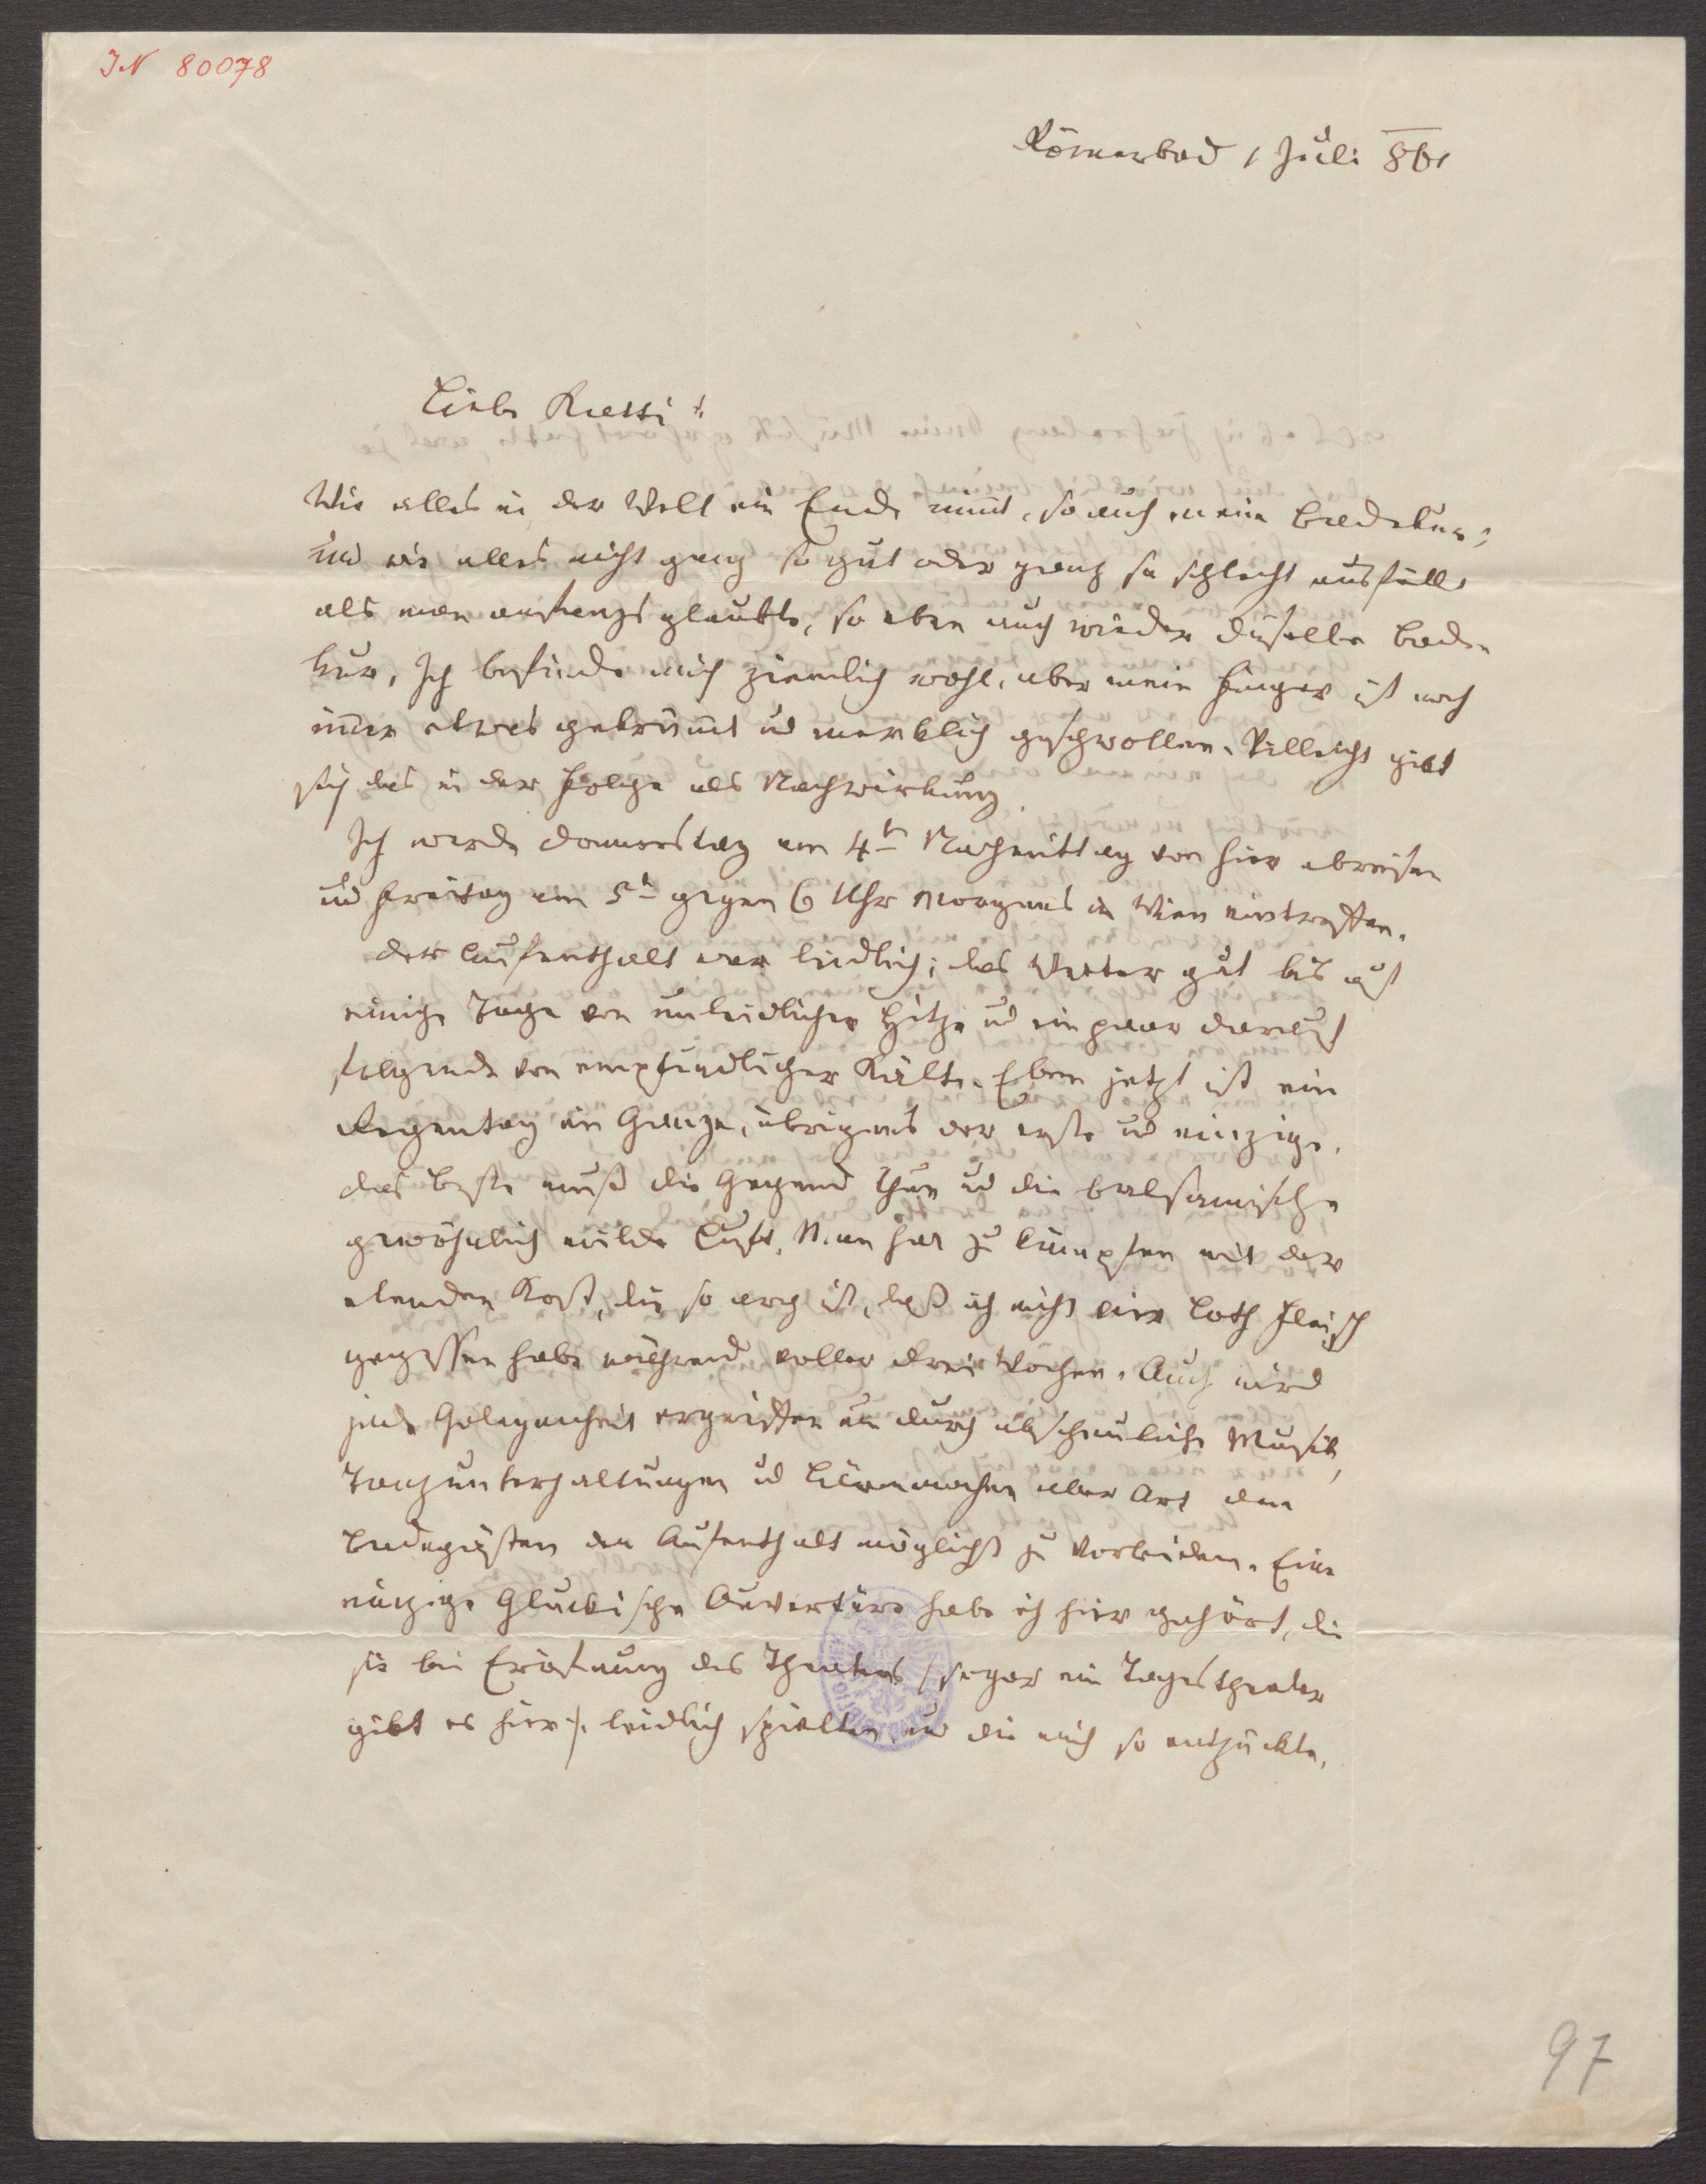 IN 80078
Römerbad 1 Juli 861
Liebe Kaetti!
Wie alles in der Welt ein Ende nim̅t, so auch meine Badekur;
und wie alles nicht ganz so gut oder ganz so schlecht ausfällt
als man anfangs glaubte, so eben auch wieder dieselbe Bade
kur, Ich befinde mich ziemlich wohl, aber mein Finger ist noch
im̅er etwas gekrüm̅t ud merklich geschwollen. Villeicht gibt
sich das in der Folge als Nachwirkung.
Ich werde Donnerstag am 4t Nachmittag von hier abreisen
ud Freitag am 5t gegen 6 Uhr Morgens in Wien eintreffen.
Der Aufenthalt war leidlich; das Wetter gut bis auf
einige Tage von unleidlicher Hitze ud ein paar darauf
folgende von empfindlicher Kälte. Eben jetzt ist ein
Regentag im Gange, übrigens der erste ud einzige.
Das Beste muß die Gegend thun ud die balsamische
gewöhnlich milde Luft. Man hat zu kämpfen mit der
elenden Kost, die so arg ist, daß ich nicht vier Loth Fleisch
gegessen habe während voller drei Wochen. Auch wird
jede Gelegenheit ergriffen um durch abscheuliche Musik,
Tanzunterhaltungen ud Lärmmachen aller Art den
Badegästen den Aufenthalt möglichst zu verleiden. Eine
einzige Gluckische Ouverture habe ich hier gehört, die
sie bei Eröffnung des Theaters /: sogar ein Tagstheater
gibt es hier :/ leidlich spielten und die mich so entzückte,
97